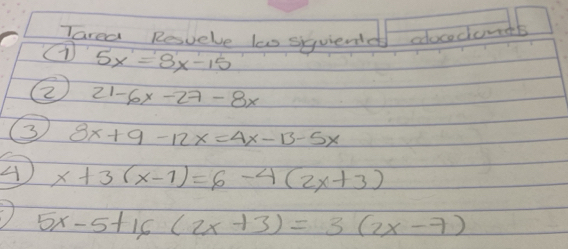 Tarea Resuelve las siguientes educaciones
① 5x = 8x - 15
② 21 - 6x - 27 - 8x
③ 8x + 9 - 12x = 4x - 13 - 5x
4) x + 3 (x - 1) = 6 - 4 (2x + 3)
5x - 5 + 16 (2x + 3) = 3 (2x - 7)